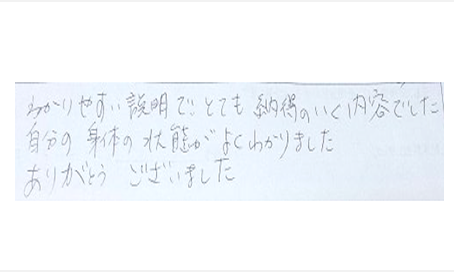 わかりやすい説明で、とても納得のいく内容でした
自分の身体の状態がよくわかりました
ありがとう ございました